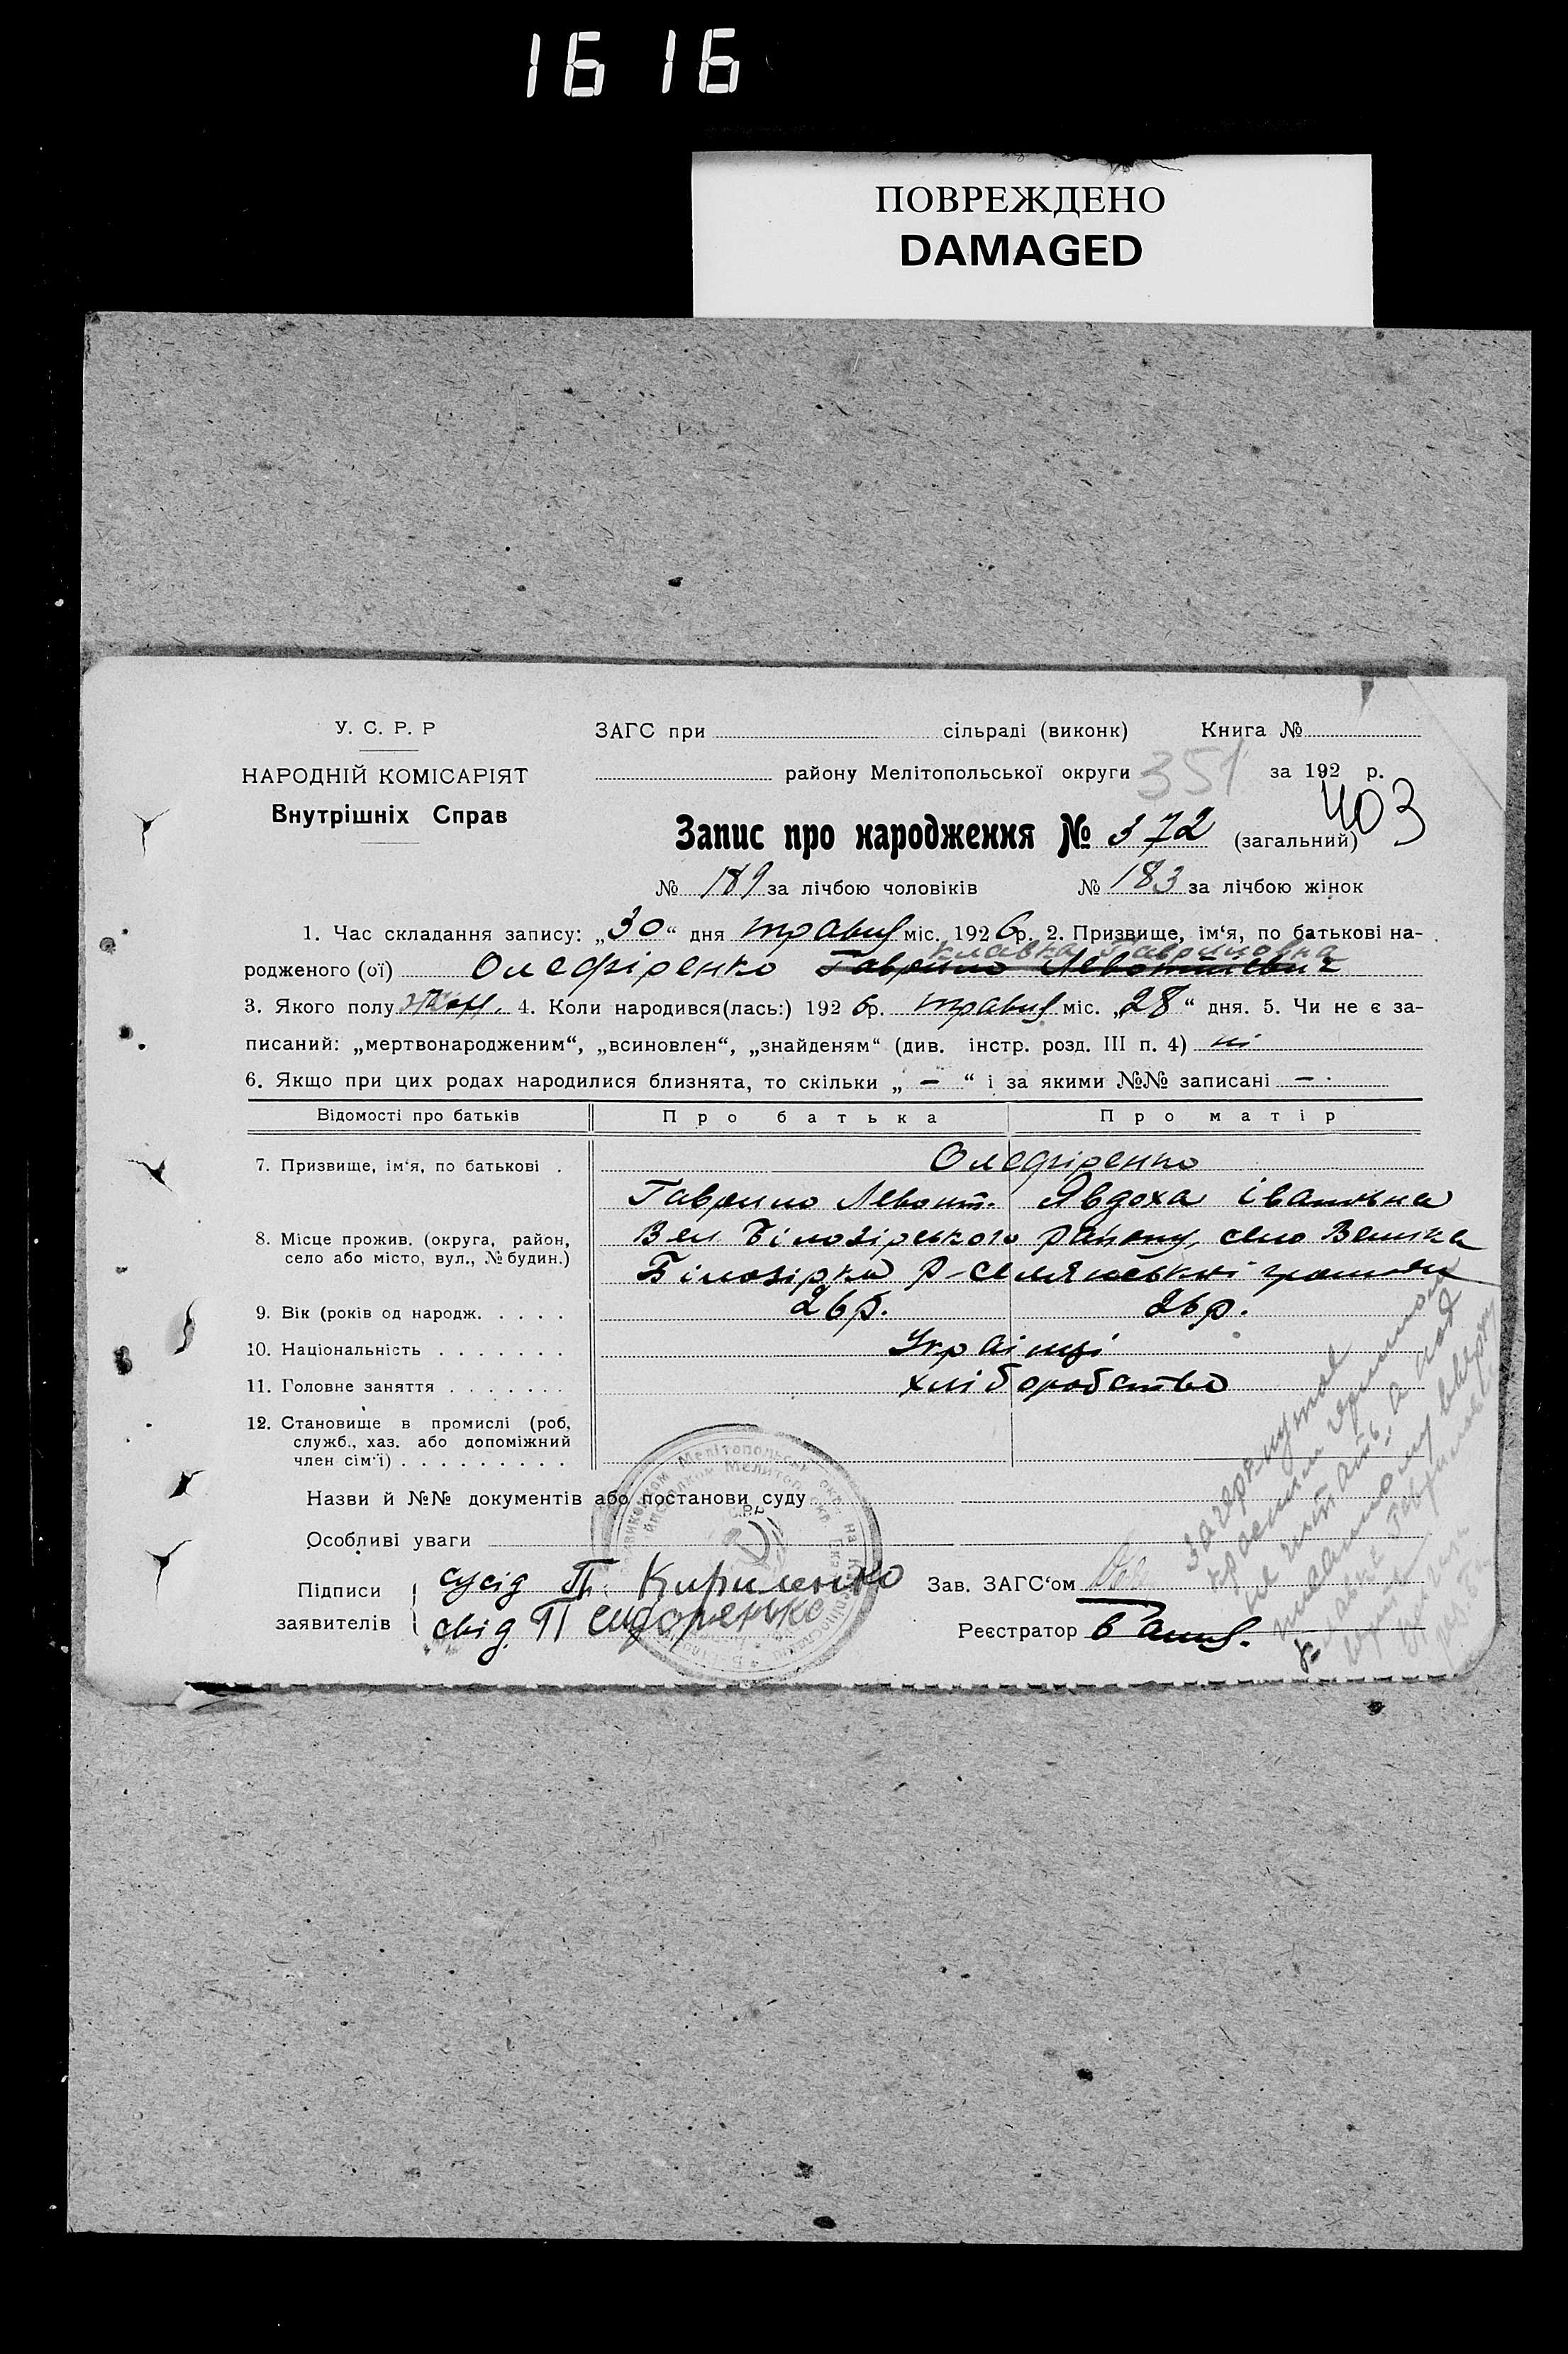 16 16
ПОВРЕЖДЕНО
DAMAGED
У. С. Р. Р
ЗАГС при сільраді (виконк) Книга №
НАРОДНІЙ КОМІСАРІЯТ
району Мелітопольської округи 351 за 192 р.
Внутрішніх Справ
403
Запис про народження № 372 (загальний)
№ 189 за лічбою чоловіків № 183 за лічбою жінок
1. Час складання запису: „30“ дня травня міс. 1926р. 2. Призвище, ім‘я, по батькові на-
Клавка Гавриловна
родженого (ої) Олефіренко Гаврило Левонтиевич
3. Якого полу жін. 4. Коли народився(лась:) 1926р. травня міс. „28“ дня. 5. Чи не є за-
писаний: „мертвонародженим“, „всиновлен“, „знайденям“ (див. інстр. розд. III п. 4) ні
6. Якщо при цих родах народилися близнята, то скільки „ — “ і за якими №№ записані — .
Відомості про батьків Про батька Про матір
7. Призвище, ім‘я, по батькові . Олефіренко
Гаврило Левонт. Явдоха Івановна
8. Місце прожив. (округа, район,
село або місто, вул., № будин.)
Вел Білозірського району, село Велика
Білозірка селянські громадян
9. Вік (років од народж. . . . . 26р. 26р.
10. Національність . . . . . . . Українці
11. Головне заняття . . . . . . . хліборобство
12. Становище в промислі (роб,
служб., хаз. або допоміжний
член сім‘ї) . . . . . . . . .
Назви й №№ документів або постанови суду
Особливі уваги
Підписи
заявителів
сусід П. Кириленко
свід. П Сидоренко
Зав. ЗАГС‘ом
Реєстратор
Зачеркнутое
красными чернилами
не читать, а над
Клавке Гавриловне